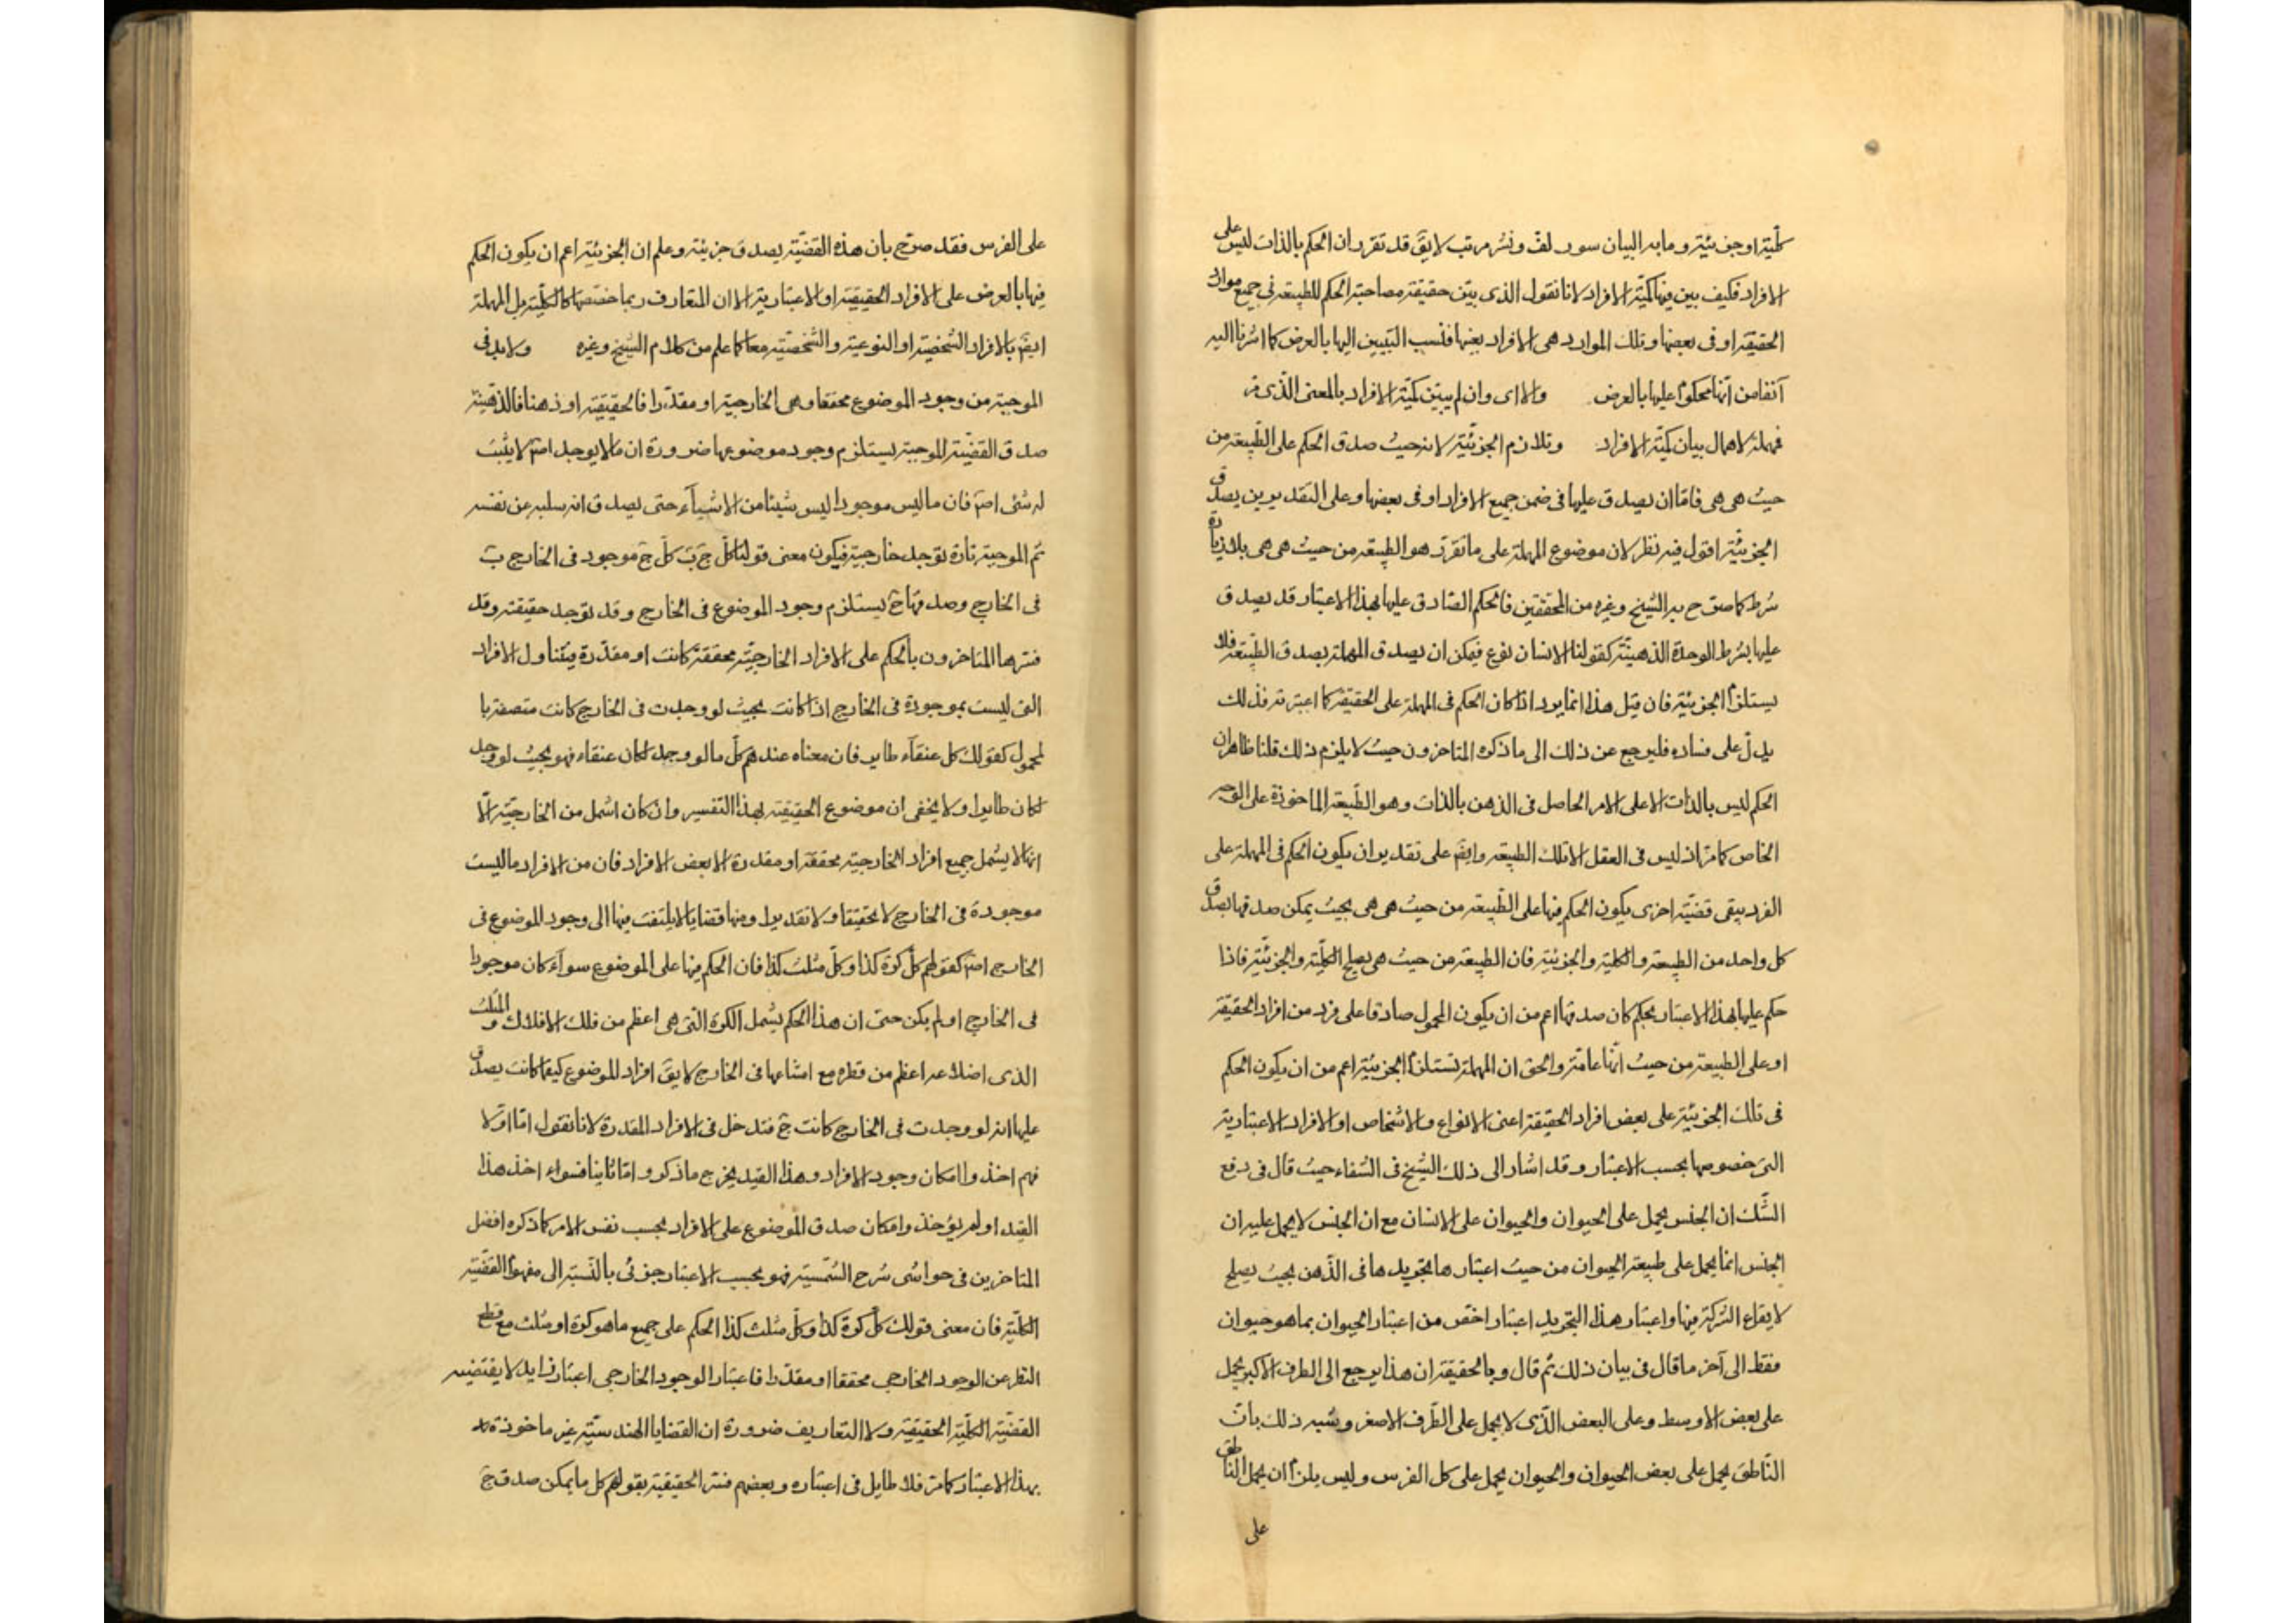 كلّيّة او جزئيّة وما به البيان سور لفّ ونشر مرتب لا يقَ قد تقرر ان الحكم بالذات ليس على
الافراد فكيف بين فيها كميّة الافراد لانا نقول الذى بيّن حقيقة مصاحبة الحكم للطبيعة فى جميع موارد
الحقيقة او فى بعضها وتلك الموارد هى الافراد بعينها فنسب التبيين اليها بالعرض كما اشرنا اليه
آنفا من انّها محكوم عليها بالعرض والا اى وان لم يبيّن كميّة الافراد بالمعنى الذى مرّ
فمهملة لاهمال بيان كميّة الافراد وتلازم الجزئيّة لانه حيث صدق الحكم على الطّبيعة من
حيث هى هى فامّا ان يصدق عليها فى ضمن جميع الافراد او فى بعضها وعلى التقديرين يصدق
الجزئيّة اقول فيه نظر لان موضوع المهملة على ما تقرّر هو الطبيعة من حيث هى هى بلا زيادة
شرط كما صرّح به الشيخ وغيره من المحققين فالحكم الصّادق عليها بهذا الاعتبار قد يصدق
عليها بشرط الوحدة الذهنيّة كقولنا الانسان نوع فيمكن ان يصدق المهملة بصدق الطّبيعة فلا
يستلزم الجزئيّة فان قيل هذا انما يرد اذا كان الحكم فى المهملة على الحقيقة كما اعتبرته فذلك
يدلّ على فساده فليرجع عن ذلك الى ما ذكره المتاخرون حيث لا يلزم ذلك قلنا ظاهر ان
الحكم ليس بالذات الا على الامر الحاصل فى الذهن بالذات وهو الطّبيعة الماخوذة على الوجه
الخاص كما مرّ اذ ليس فى العقل الا تلك الطبيعة وايضَ على تقدير ان يكون الحكم فى المهملة على
الفرد يبقى قضيّة اخرى يكون الحكم فيها على الطّبيعة من حيث هى هى بحيث يمكن صدقها بصدق
كل واحد من الطبيعة والكلية والجزئيّة فان الطبيعة من حيث هى يصلح للكليّة والجزئيّة فاذا
حكم عليها بهذا الاعتبار بحكم كان صدقها اعم من ان يكون المحمول صادقا على فرد من افراد الحقيقة
او على الطبيعة من حيث انّها عامّة والحق ان المهملة تستلزم الجزئيّة اعم من ان يكون الحكم
فى تلك الجزئيّة على بعض افراد الحقيقة اعنى الانواع والاشخاص او الافراد الاعتبارية
التى خصوصها بحسب الاعتبار وقد اشار الى ذلك الشيخ فى الشفاء حيث قال فى دفع
الشّك ان الجنس يحمل على الحيوان والحيوان على الانسان مع ان الجنس لا يحمل عليه ان
الجنس انما يحمل على طبيعة الحيوان من حيث اعتبارها بتجريدها فى الذّهن بحيث يصلح
لايقاع الشركة فيها واعتبار هذا التجريد اعتبار اخصّ من اعتبار الحيوان بما هو حيوان
فقط الى آخر ما قال فى بيان ذلك ثم قال وبالحقيقة ان هذا يرجع الى الطرف الاكبر يحمل
على بعض الاوسط وعلى البعض الذّى لا يحمل على الطّرف الاصغر وشبه ذلك بانّ
النّاطق يحمل على بعض الحيوان والحيوان يحمل على كل الفرس وليس يلزم ان يحمل الناطق
على
على الفرس فقد صرّح بان هذه القضيّة يصدق جزئية وعلم ان الجزئيّة اعم ان يكون الحكم
فيها بالعرض على الافراد الحقيقيّة او الاعتبارية الا ان المتعارف ربما خصّصها كالكليّة بل المهملة
ايضَ بالافراد الشّخصيّة او النوعيّة والشّخصيّة معا كما علم من كلام الشيخ وغيره ولا بد فى
الموجبة من وجود الموضوع محققا وهى الخارجية او مقدّرا فالحقيقية او ذهنا فالذّهنيّة
صدق القضيّة الموجبة يستلزم وجود موضوعها ضرورة ان ما لا يوجد اصَ لا يثبت
له شئى اصَ فان ما ليس موجودا ليس شيئا من الاشيآء حتى يصدق انه سلبه عن نفسه
ثم الموجبة تارة توجد خارجية فيكون معنى قولنا كلّ جَ بَ كلّ جَ موجود فى الخارج بَ
فى الخارج وصدقها حَ يستلزم وجود الموضوع فى الخارج وقد توجد حقيقة وقد
فسّرها المتاخرون بالحكم على الافراد الخارجيّة محققة كانت او مقدّرة فيتناول الافراد
التى ليست بموجودة فى الخارج اذا كانت بحيث لو وجدت فى الخارج كانت متصفة با
لمحمول كقولك كل عنقآء طاير فان معناه عندهم كلّ ما لو وجد لكان عنقاء فهو بحيث لو وجد
لكان طايرا ولا يخفى ان موضوع الحقيقية بهذا التفسير وان كان اشمل من الخارجيّة الّا
انها لا يشمل جميع افراد الخارجية محققة او مقدرة الا بعض الافراد فان من الافراد ما ليست
موجودة فى الخارج لا تحقيقا ولا تقديرا ومنها قضايا لا يلتفت فيها الى وجود الموضوع فى
الخارج اصَ كقولهم كلّ كرة كذا وكلّ مثلث كذا فان الحكم فيها على الموضوع سوآء كان موجودا
فى الخارج او لم يكن حتى ان هذا الحكم يشمل الكرة التى هى اعظم من فلك الافلاك والمثلث
الذى اضلاعه اعظم من قطره مع امتناعها فى الخارج لا يقَ افراد الموضوع كيفما كانت يصدق
عليها انه لو وجدت فى الخارج كانت جَ فتدخل فى الافراد المقدرة لانا نقول امّا اوّلا
فهم اخذوا امكان وجود الافراد وهذا القيد يخرج ما ذكر وامّا ثانيا فسواء اخذ هذا
القيد او لم يؤخذ وامكان صدق الموضوع على الافراد بحسب نفس الامر كما ذكره افضل
المتاخرين فى حواشى شرح الشّمسية فهو بحسب الاعتبار جزئى بالنّسبة الى مفهوم القضّية
الكليّة فان معنى قولك كلّ كرة كذا وكلّ مثلث كذا الحكم على جميع ما هو كرة او مثلث مع قطع
النظر عن الوجود الخارجى محققا او مقدّرا فاعتبار الوجود الخارجى اعتبار زايد لا يقتضيه
القضّية الكليّة الحقيقية ولا التعاريف ضرورة ان القضايا الهندسيّة غير ماخوذة
بهذا الاعتبار كما مرّ فلا طايل فى اعتباره وبعضهم فسّر الحقيقية بقولهم كل ما يمكن صدق جَ